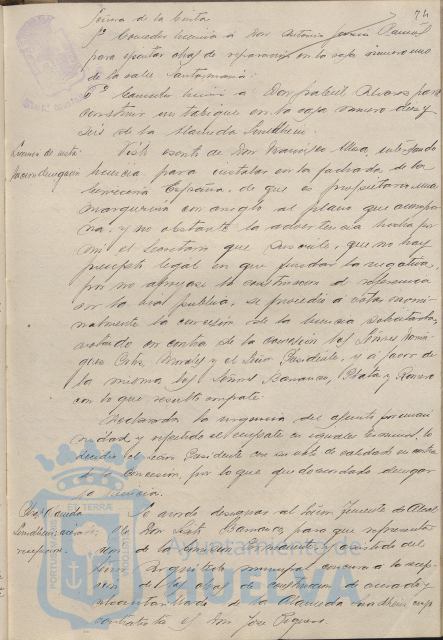 74
forma de la Cinta.
5º Conceder licencia a Don Antonio García Ramos
para ejecutar obras de reparación en la casa número uno
de la calle
6º Conceder licencia a Don Isabel Alvarez para
construir un tabique en la casa número diez y
seis de la Alameda Sundheim.
Licencia de insta-
lación denegación
Visto escrito de Don Francisco solicitando
licencia para instalar en la fachada de la
cervecería España, de que es propietario una
marquesina con arreglo al plano que acompa-
ña, y no obstante la advertencia hecha por
mí el Secretario que suscribe, que no hay
precepto legal en que fundar la negativa,
por no apoyarse la construcción de referencia
en la vía pública, se procedió a votar nomi-
nalmente la concesión de la licencia solicitada,
votando en contra de la concesión los Señores
Morales y el Señor Presidente, y a favor de
la misma los Señores Barranco, Plata y Romero
con lo que resultó empate.
Declarada la urgencia del asunto por unani-
midad, y repetido el empate en iguales términos, lo
decidió el Señor Presidente con su voto de calidad en contra
de la concesión, por lo que quedó acordado denegar
la licencia.
Sundheim
recepción.
Se acordó designar al Señor Teniente de Alcal-
de Don José Barranco para que represente
de la Comisión Permanente y asistido del
Señor Arquitecto municipal concurra a la recep-
ción de las obras de construcción de acerado y
alcantarillado de la Alameda Sundheim
contratista Don José
Ayuntamiento de
HUELVA
PORTUS MARIS
TERRAE